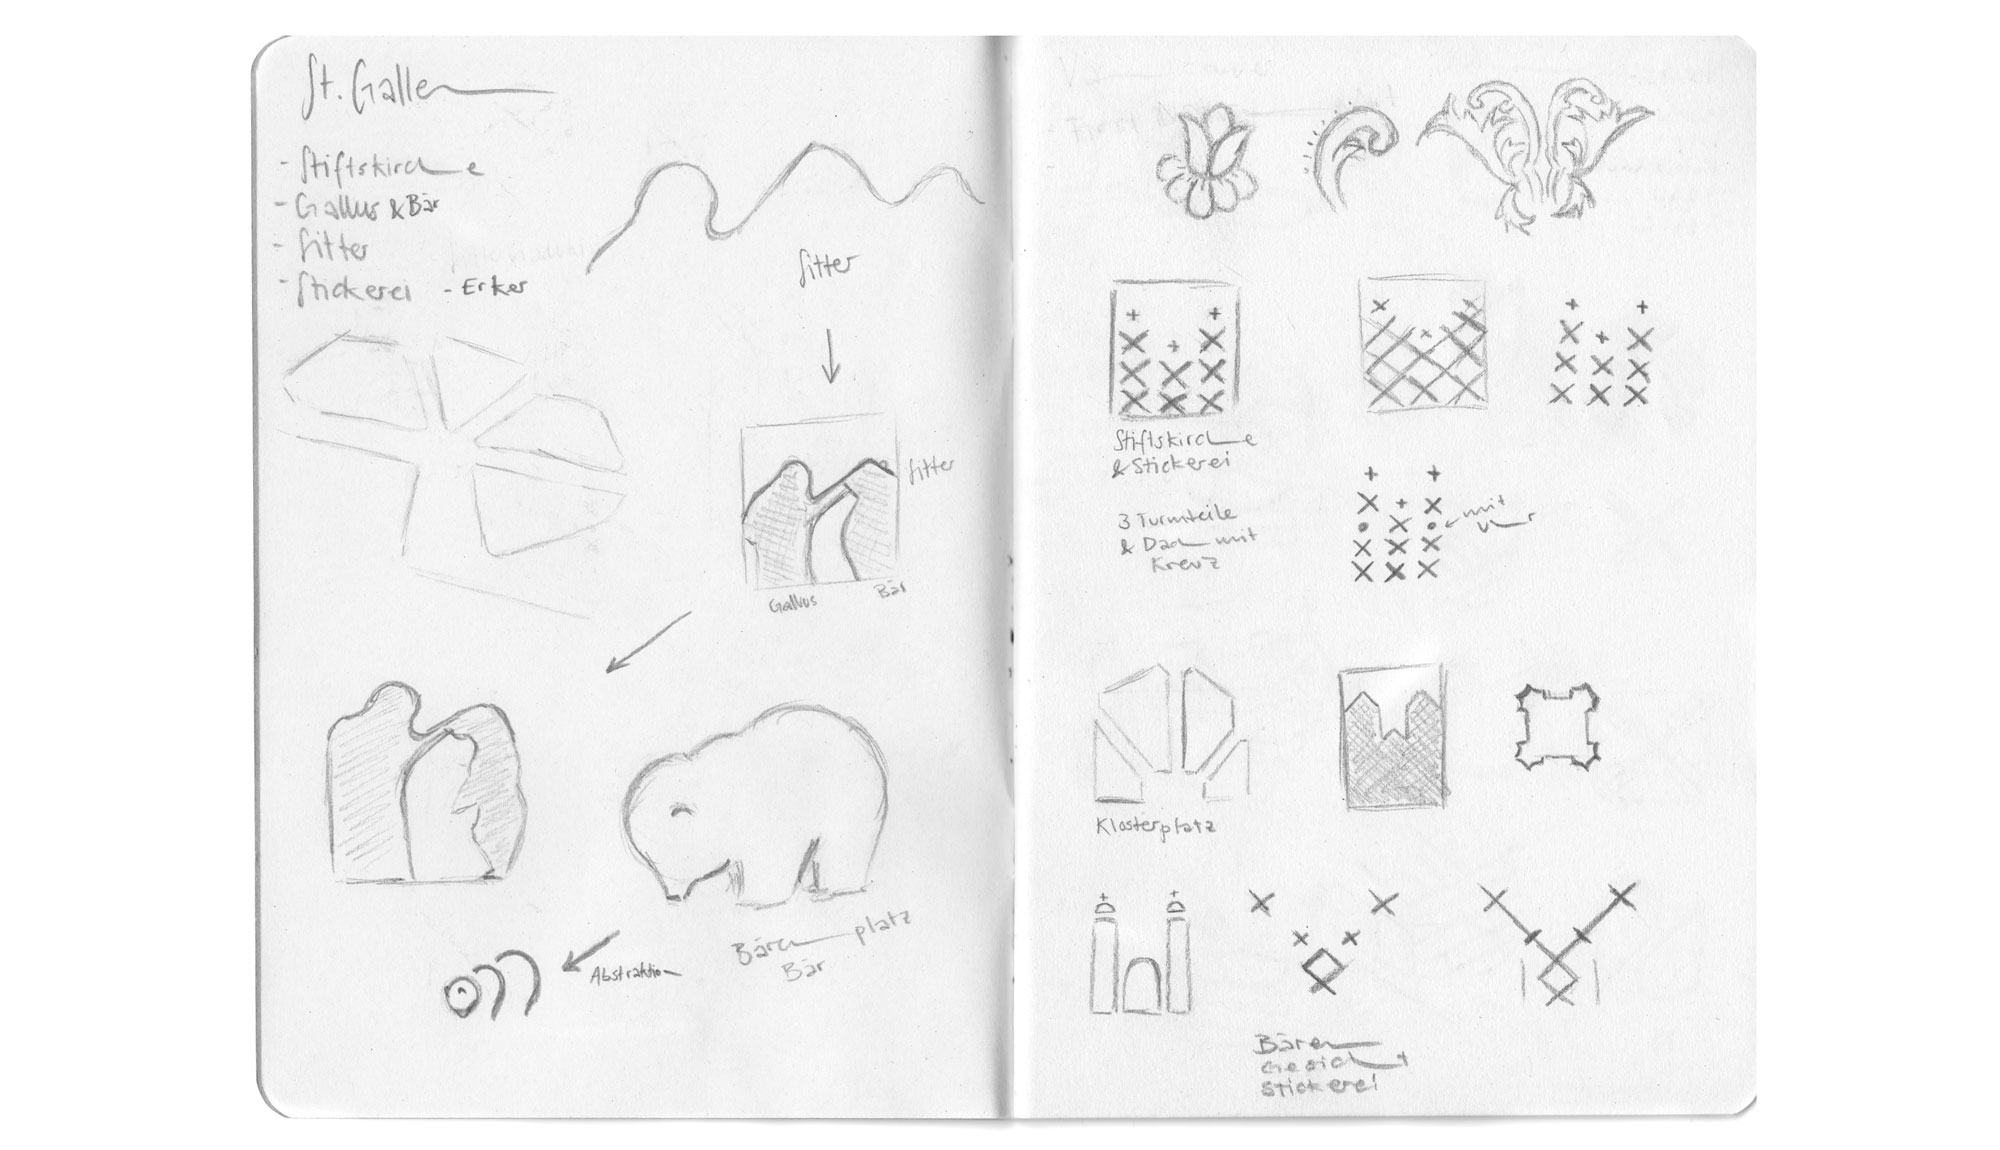 St. Gallen
- Stiftskirche
- Gallus & Bär
- Sitter
- Stickerei - Erker
Sitter
Sitter
Gallus
Bär
Bärenplatz
Bär
Abstraktion
Stiftskirche
& Stickerei
3 Turmteile
& Dach mit
Kreuz
mit
Uhr
Klosterplatz
Bären
Gesicht
Stickerei